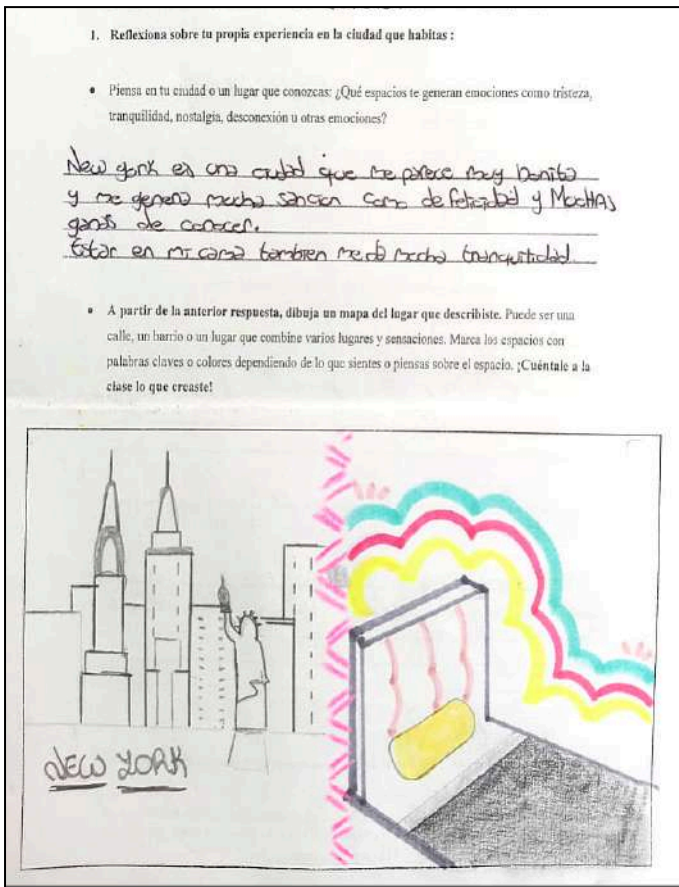 1. Reflexiona sobre tu propia experiencia en la ciudad que habitas :
• Piensa en tu ciudad o un lugar que conozcas: ¿Qué espacios te generan emociones como tristeza,
tranquilidad, nostalgia, desconexión u otras emociones?
New york es una ciudad que me parece muy bonita
y me genera mucha sancion como de felicidad y MucHAS
ganas de conocer.
Estar en mi cama tambien me da mucha tranquilidad
• A partir de la anterior respuesta, dibuja un mapa del lugar que describiste. Puede ser una
calle, un barrio o un lugar que combine varios lugares y sensaciones. Marca los espacios con
palabras claves o colores dependiendo de lo que sientes o piensas sobre el espacio. ¡Cuéntale a la
clase lo que creaste!
NEW YORK